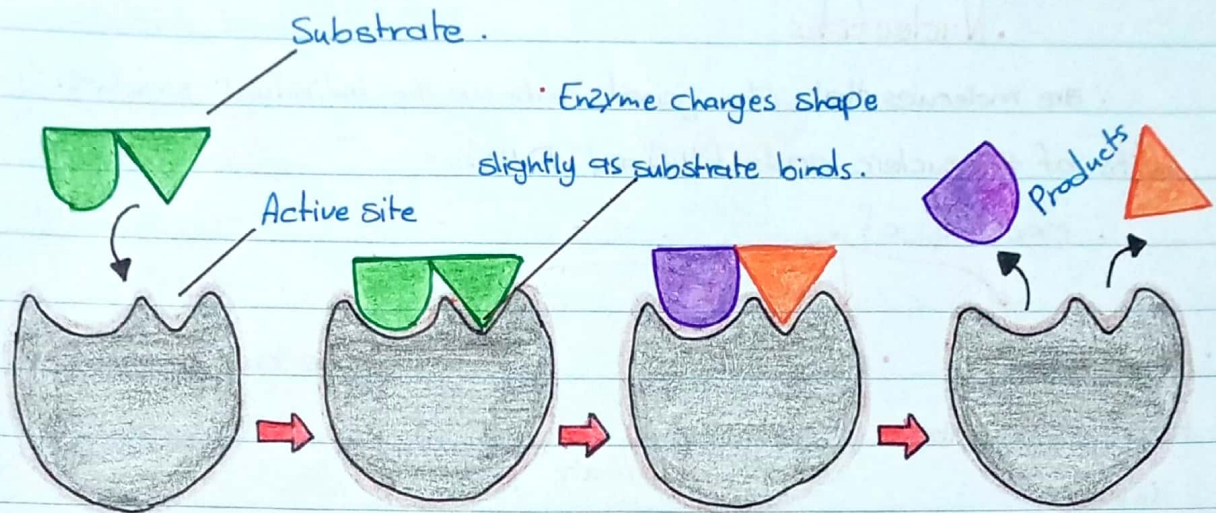 Substrate.
Enzyme charges shape
slightly as substrate binds.
Active site
Products